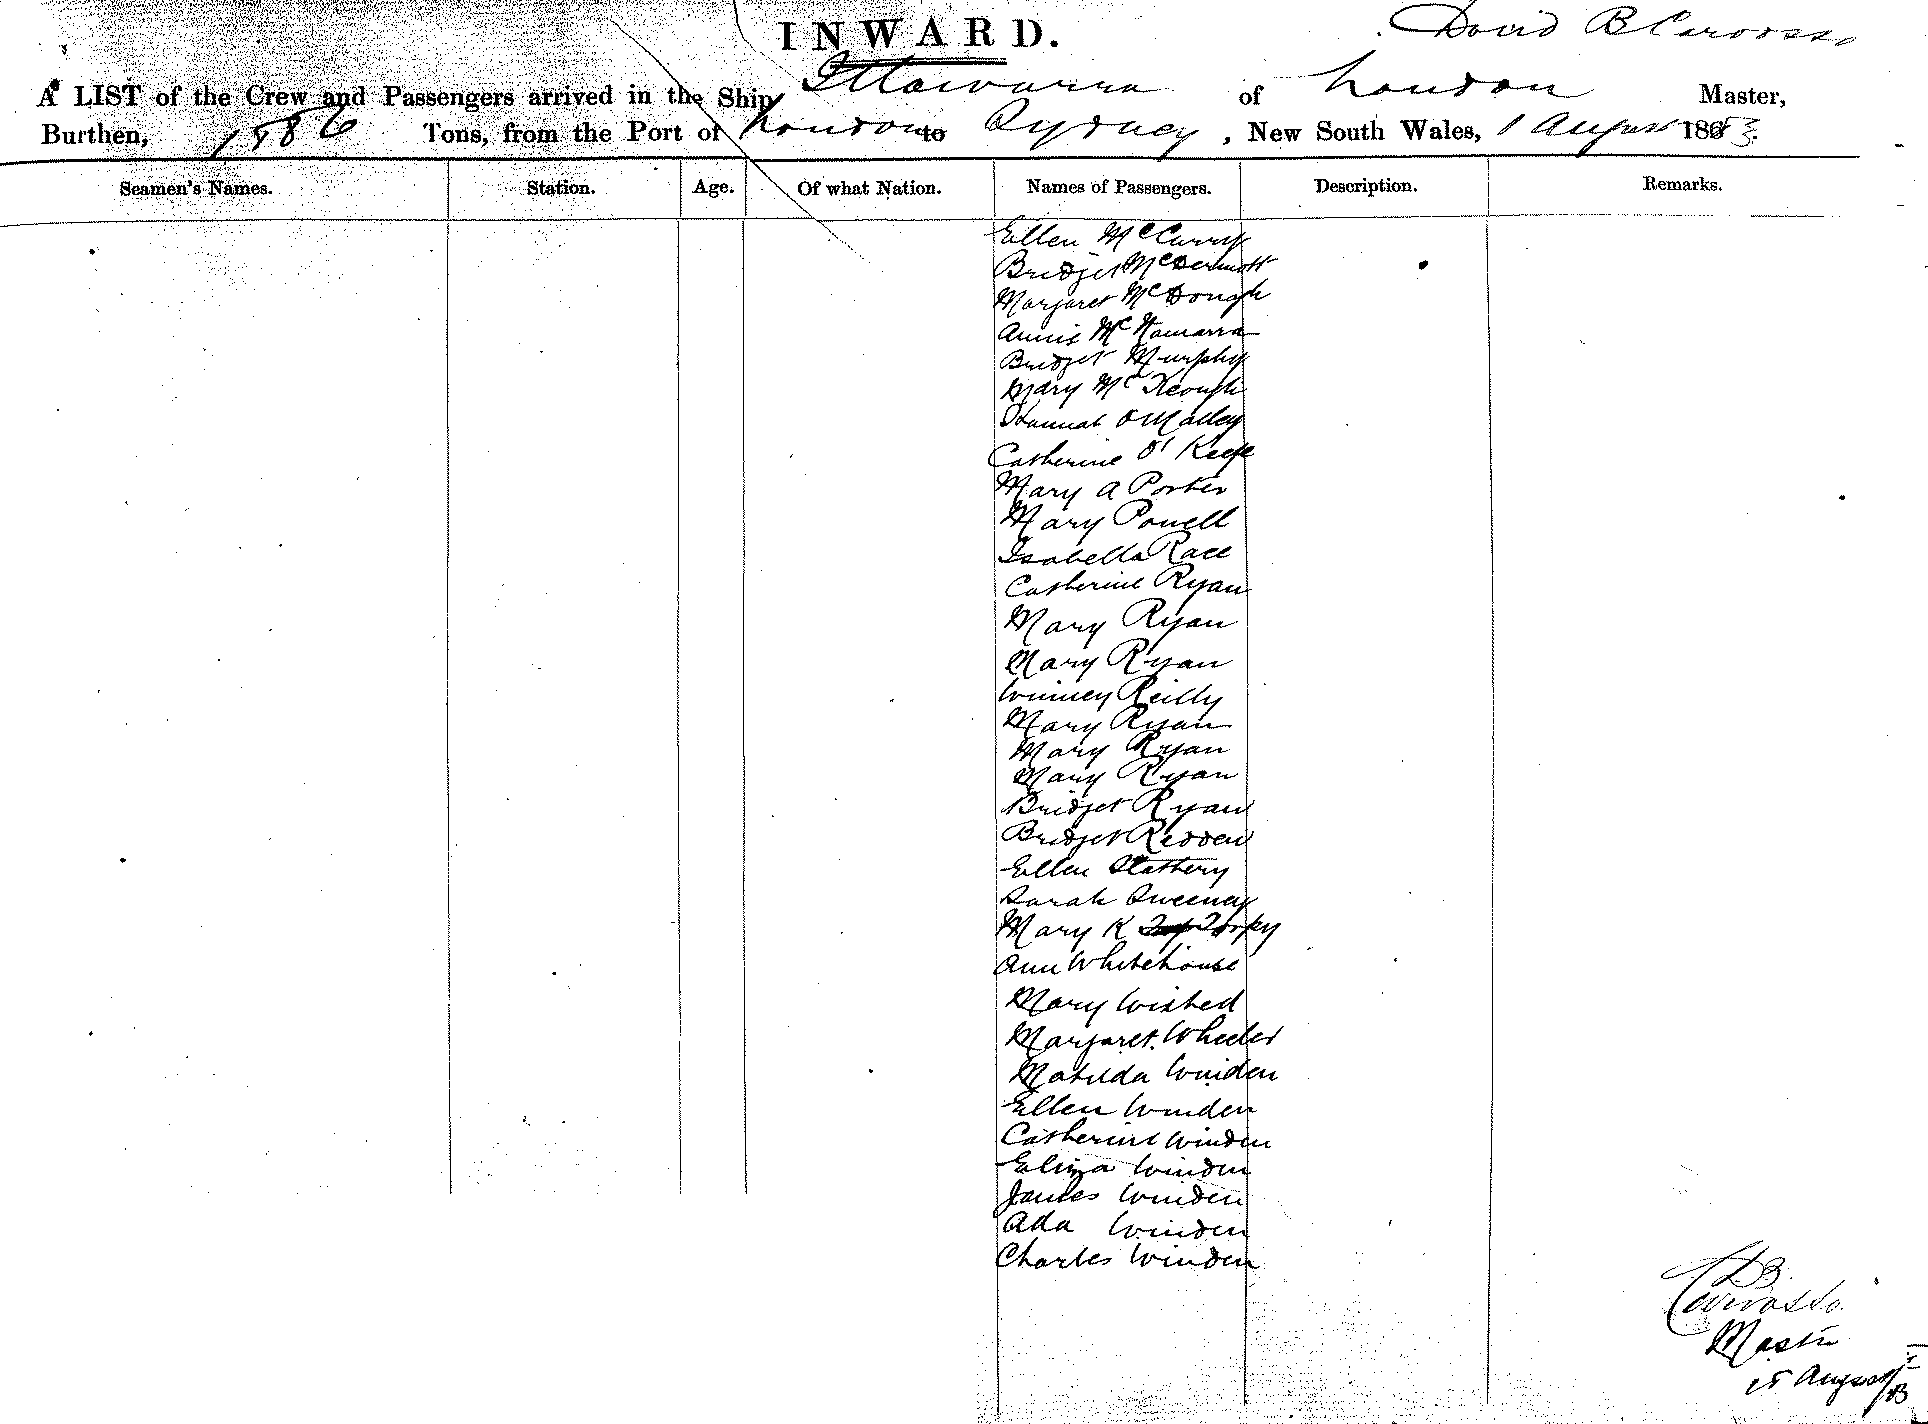 INWARD.
David B Carvosso
A LIST of the Crew and Passengers arrived in the Ship Illawarra of London Master,
Burthen, 1886 Tons, from the Port of London to Sydney, New South Wales, 1 August 1883.
Seamen's Names. Station. Age. Of what Nation. Names of Passengers. Description. Remarks.
Ellen McCurry
Bridget McDermott
Margaret McDough
Annie McNamarra
Bridget Murphy
Mary McKeough
Hannah O'Malley
Catherine O'Keefe
Mary A Porter
Mary Powell
Isabella Race
Catherine Ryan
Mary Ryan
Mary Ryan
Winney Reilly
Mary Ryan
Mary Ryan
Mary Ryan
Bridget Ryan
Bridget Redden
Ellen Slattery
Sarah Sweeney
Mary K Torpy
Ann Whitehouse
Mary Wished
Margaret Wheeler
Matilda Winden
Ellen Winden
Catherine Winden
Eliza Winden
James Winden
Ada Winden
Charles Winden
DB
Carvosso
Master
August/83